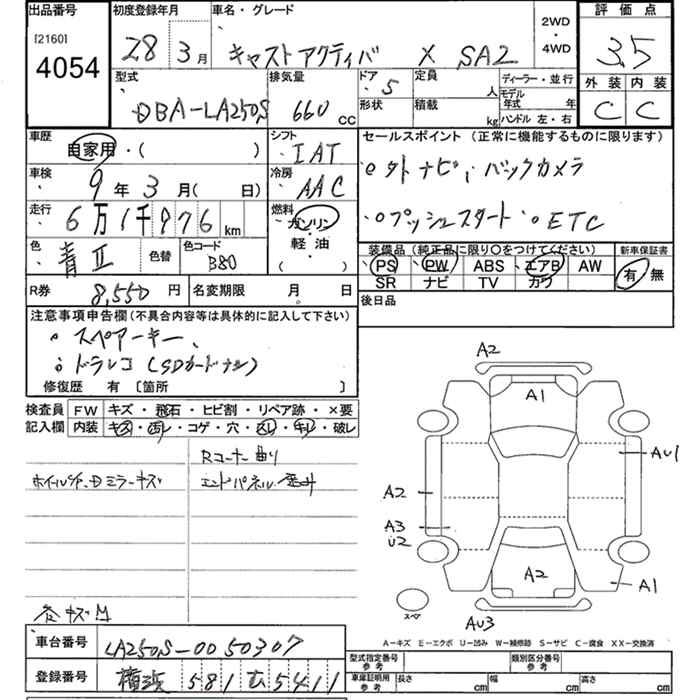 出品番号 初度登録年月 車名・グレード 2WD・4WD 評価点
[2160]
4054 28年3月 キャストアクティバ X SA2 3.5
型式 排気量 ドア 5 定員 人 ディーラー・並行 外装 内装
DBA-LA250S 660cc 形状 積載 kg モデル年式 年 C C
ハンドル 左・右
車歴 シフト セールスポイント (正常に機能するものに限ります)
自家用・( ) IAT
車検 9年3月( 日) 冷房 AAC 外ナビ、バックカメラ
走行 6万1千976km 燃料 ガソリン 軽油 ・( ) プッシュスタート ETC
色 青II 色替 色コード B80 装備品(純正品に限り〇をつけてください) 新車保証書
PS PW ABS エアB AW 有・無
SR ナビ TV カワ
R券 8,550円 名変期限 月 日 後日品
注意事項申告欄(不具合内容等は具体的に記入して下さい)
スペアーキー、
ドラレコ(SDカードナシ)
修復歴 有 [箇所 ]
検査員 FW キズ・飛石・ヒビ割・リペア跡・×要
記入欄 内装 キズ・汚レ・コゲ・穴・スレ・キレ・破レ
Rコーナー曲り
ミラーキズ エンドパネル
A2
A1
AU1
A2
A3
U2
A2
A1
スペア
AU3
A-キズ E-エクボ U-凹み W-補修跡 S-サビ C-腐食 XX-交換済
車台番号 LA250S-0050307
登録番号 横浜 581 む 5411
型式指定番号 参考 類別区分番号 参考
車庫証明用 参考 長さ cm 幅 cm 高さ cm